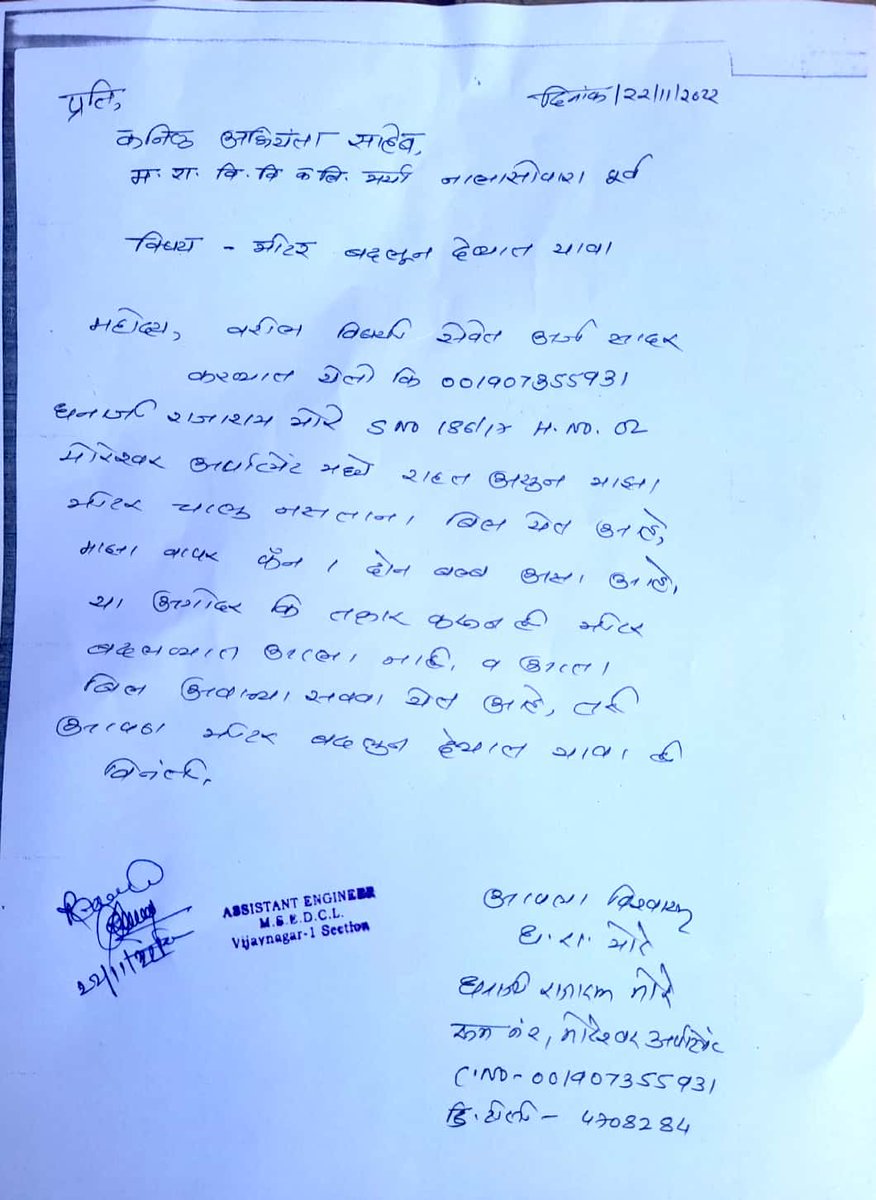 प्रति, दिनांक/२२/११/२०२२
कनिष्ठ अभियंता साहेब,
म. रा. वि. वि कं लि. मर्या नालासोपारा पूर्व
विषय - मीटर बदलून देण्यात यावा
महोदय, वरील विषयी सेवेत अर्ज सादर
करण्यात येतो कि 001907355931
धनाजी राजाराम मोरे S NO 186/17 H. NO. 02
मोरेश्वर अपार्टमेंट मध्ये राहत असुन माझा
मीटर चालु नसताना बिल येत आहे,
माझा वापर फॅन १ दोन बल्ब असा आहे,
या अगोदर कि तक्रार करुन ही मीटर
बदलण्यात आला नाही, व आता
बिल अवाच्या सव्वा येत आहे, तरी
आपण मीटर बदलुन देण्यात यावा ही
विनंती,
22/11/22
ASSISTANT ENGINEER
M.S.E.D.C.L.
Vijaynagar-1 Section
आपला विश्वासू
ध. रा. मोरे
धनाजी राजाराम मोरे
रूम नं, मोरेश्वर अपार्टमेंट
C.NO - 001907355931
डि. पीसी - 4708284